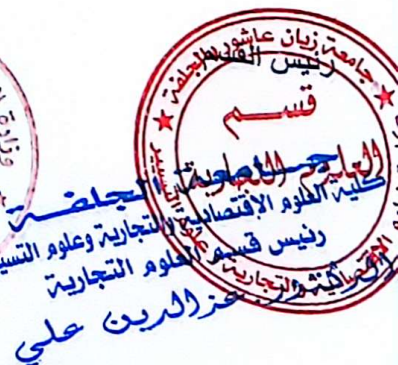 جامعة زيان عاشور الجلفة
رئيس القسم
قسم
العلوم التجارية
جامعة الجلفة
كلية العلوم الاقتصادية والتجارية وعلوم التسيير
رئيس قسم العلوم التجارية
عزالدين علي
وزارة